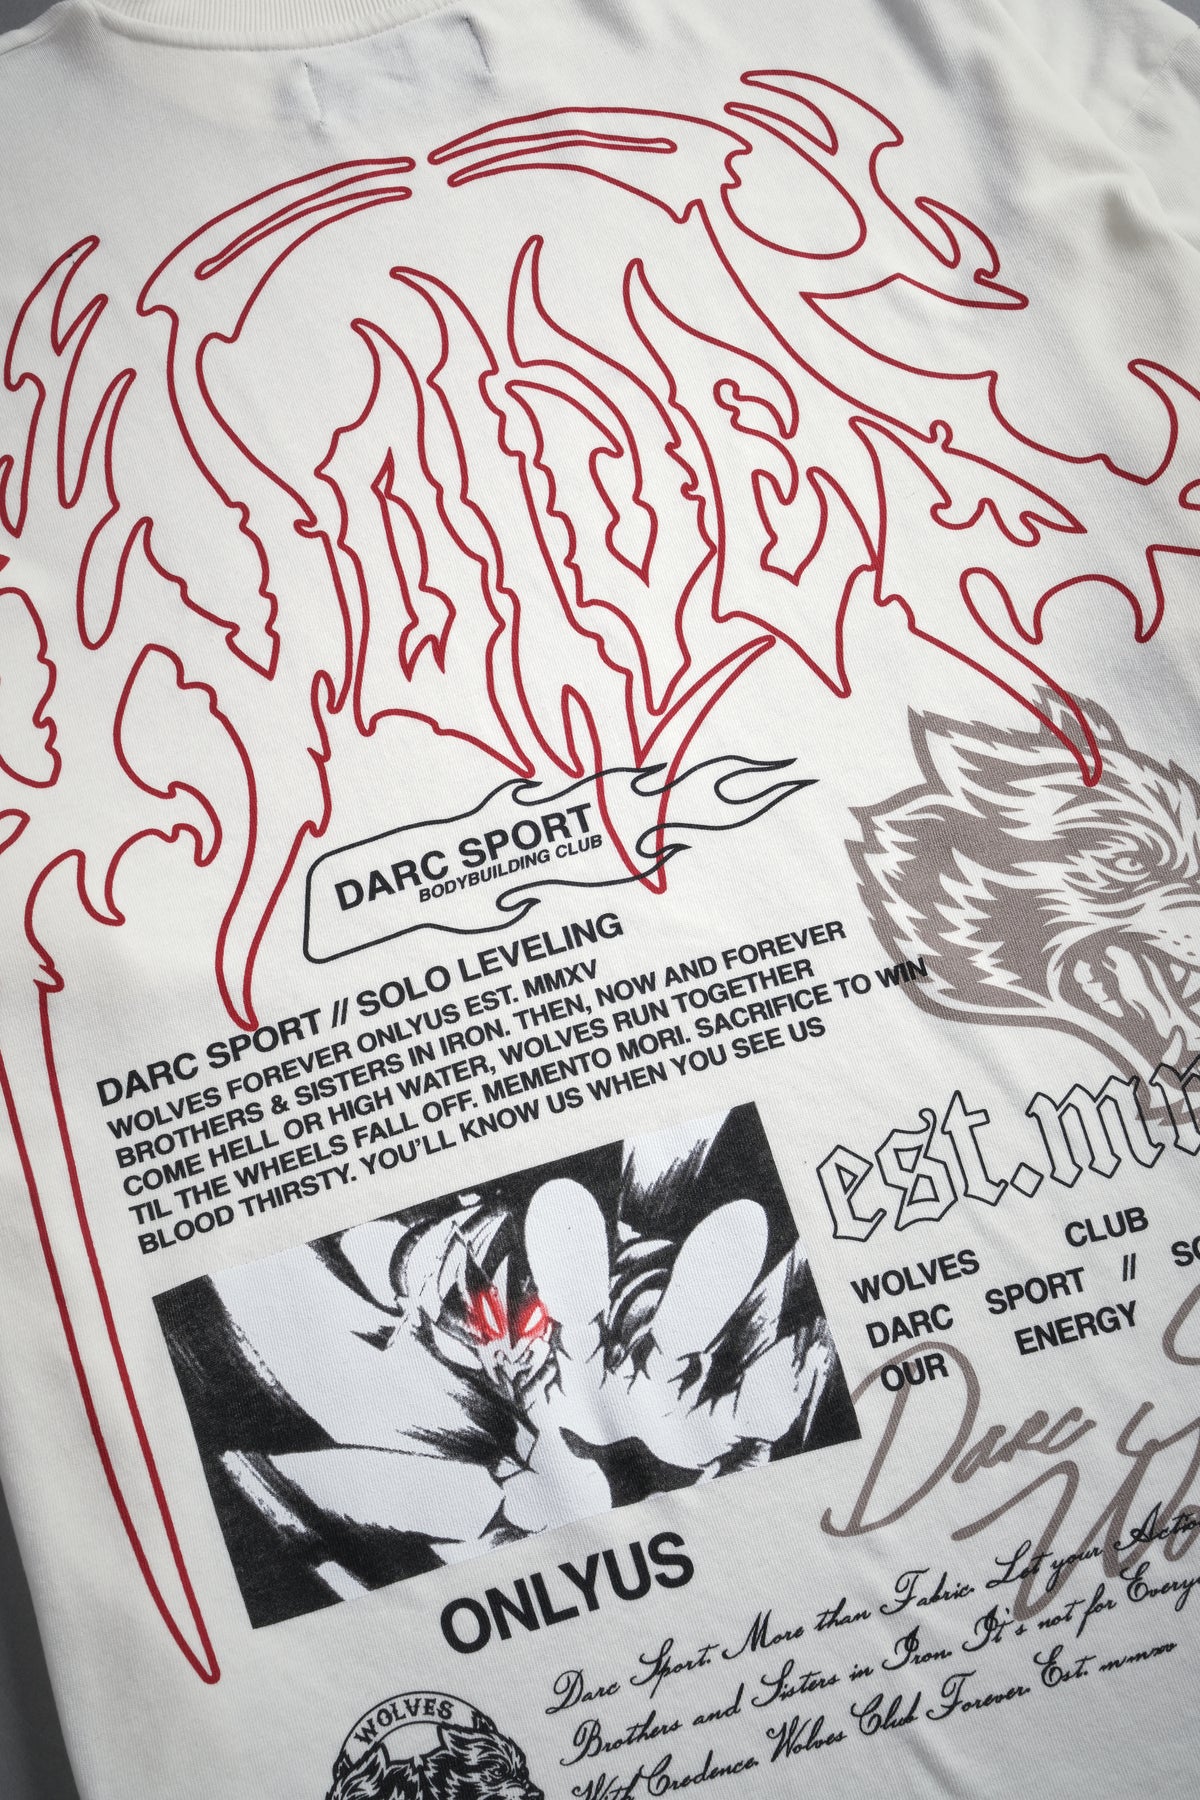 WOLVES
DARC SPORT
BODYBUILDING CLUB
DARC SPORT // SOLO LEVELING
WOLVES FOREVER ONLYUS EST. MMXV
BROTHERS & SISTERS IN IRON. THEN, NOW AND FOREVER
COME HELL OR HIGH WATER, WOLVES RUN TOGETHER
TIL THE WHEELS FALL OFF. MEMENTO MORI. SACRIFICE TO WIN
BLOOD THIRSTY. YOU'LL KNOW US WHEN YOU SEE US
est.m
WOLVES CLUB
DARC SPORT //
OUR ENERGY
Darc
ONLYUS
Darc Sport. More than Fabric. Let your
Brothers and Sisters in Iron. It's not for
With Credence. Wolves Club Forever. Est. mmxv
WOLVES